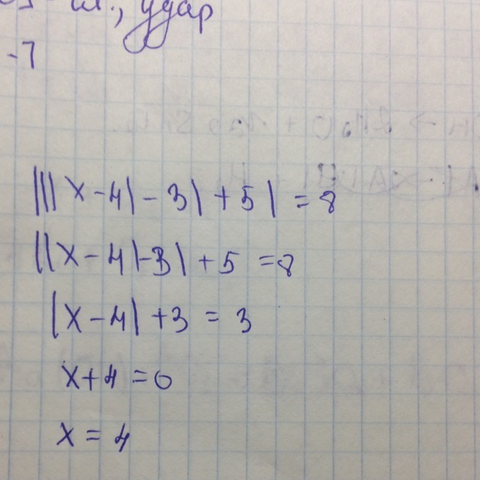 удар
-7
||| x - 4| - 3| + 5| = 8
||x - 4|-3| + 5 = 8
|x - 4| + 3 = 3
x + 4 = 0
x = 4